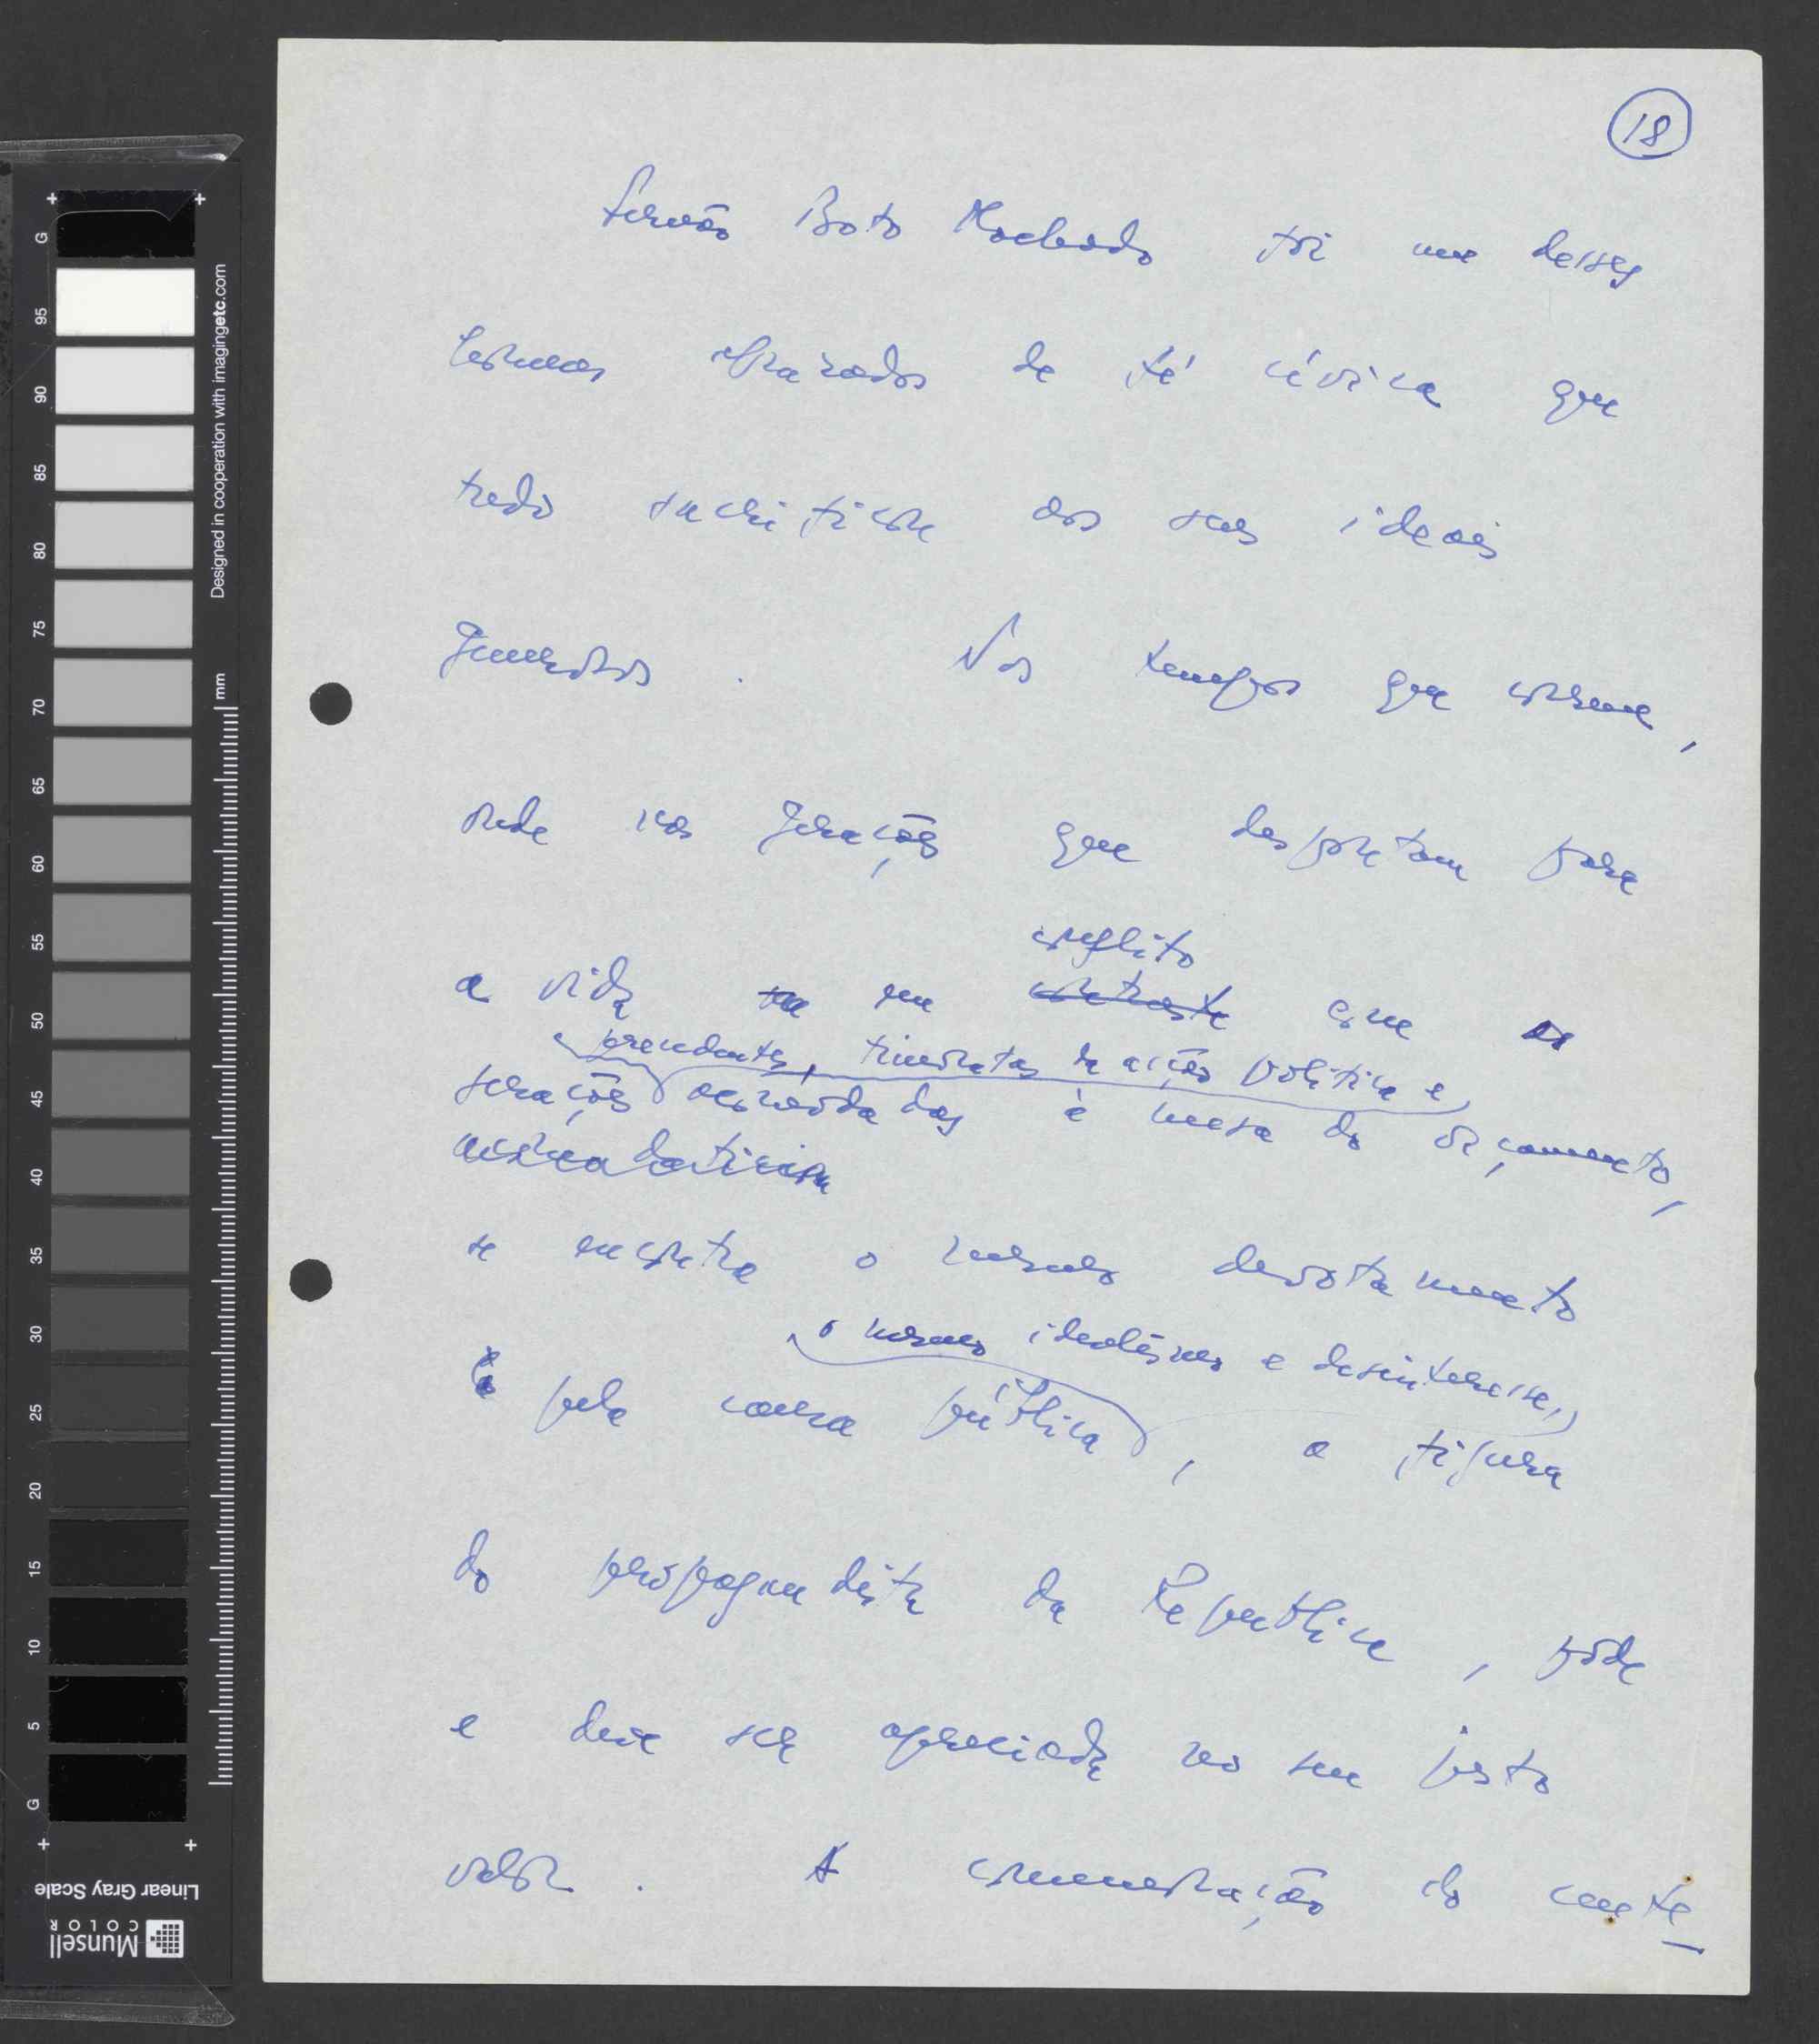 18
Fernão Boto Machado foi um desses
homens abrasados de fé cívica que
tudo sacrificou aos seus ideais
generosos. Nos tempos que correm,
onde nas gerações que despontam para
a vida ou em conflito com as
gerações precedentes, triunfantes da acção política e
acomodadas à mesa do orçamento,
se encontra o mesmo devotamento
e pela causa pública, o mesmo idealismo e desinteresse, a figura
do propagandista da República, pode
e deve ser apreciada no seu justo
valor. A comemoração do cente-
Designed in cooperation with imagingetc.com
mm
G 95 90 85 80 75 70 65 60 55 50 45 40 35 30 25 20 15 10 5 G
Linear Gray Scale
Munsell
COLOR